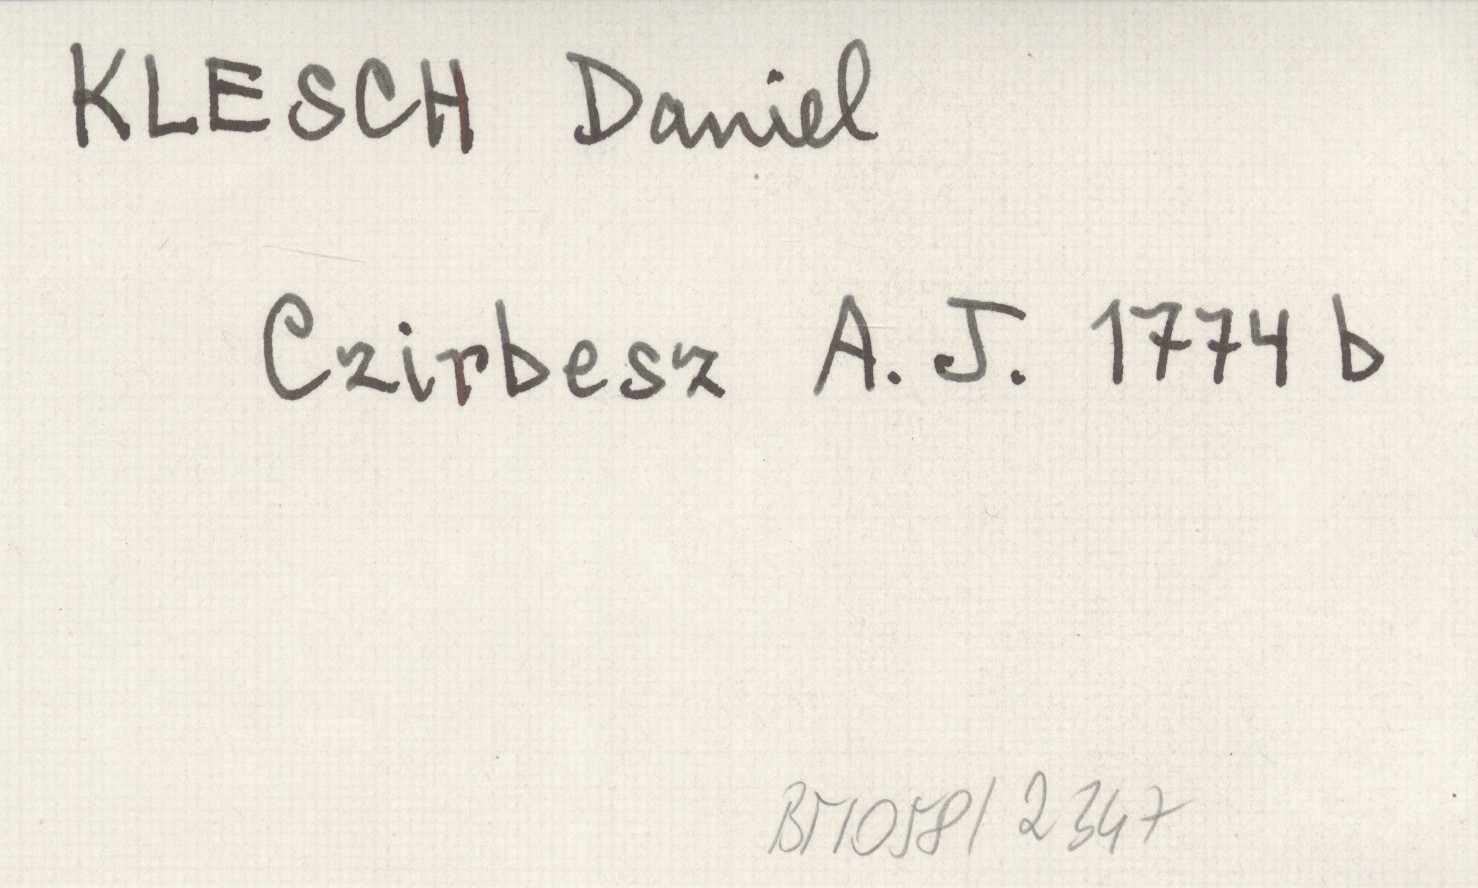 KLESCH Daniel
Czirbesz A. J. 1774 b
BM058/2347